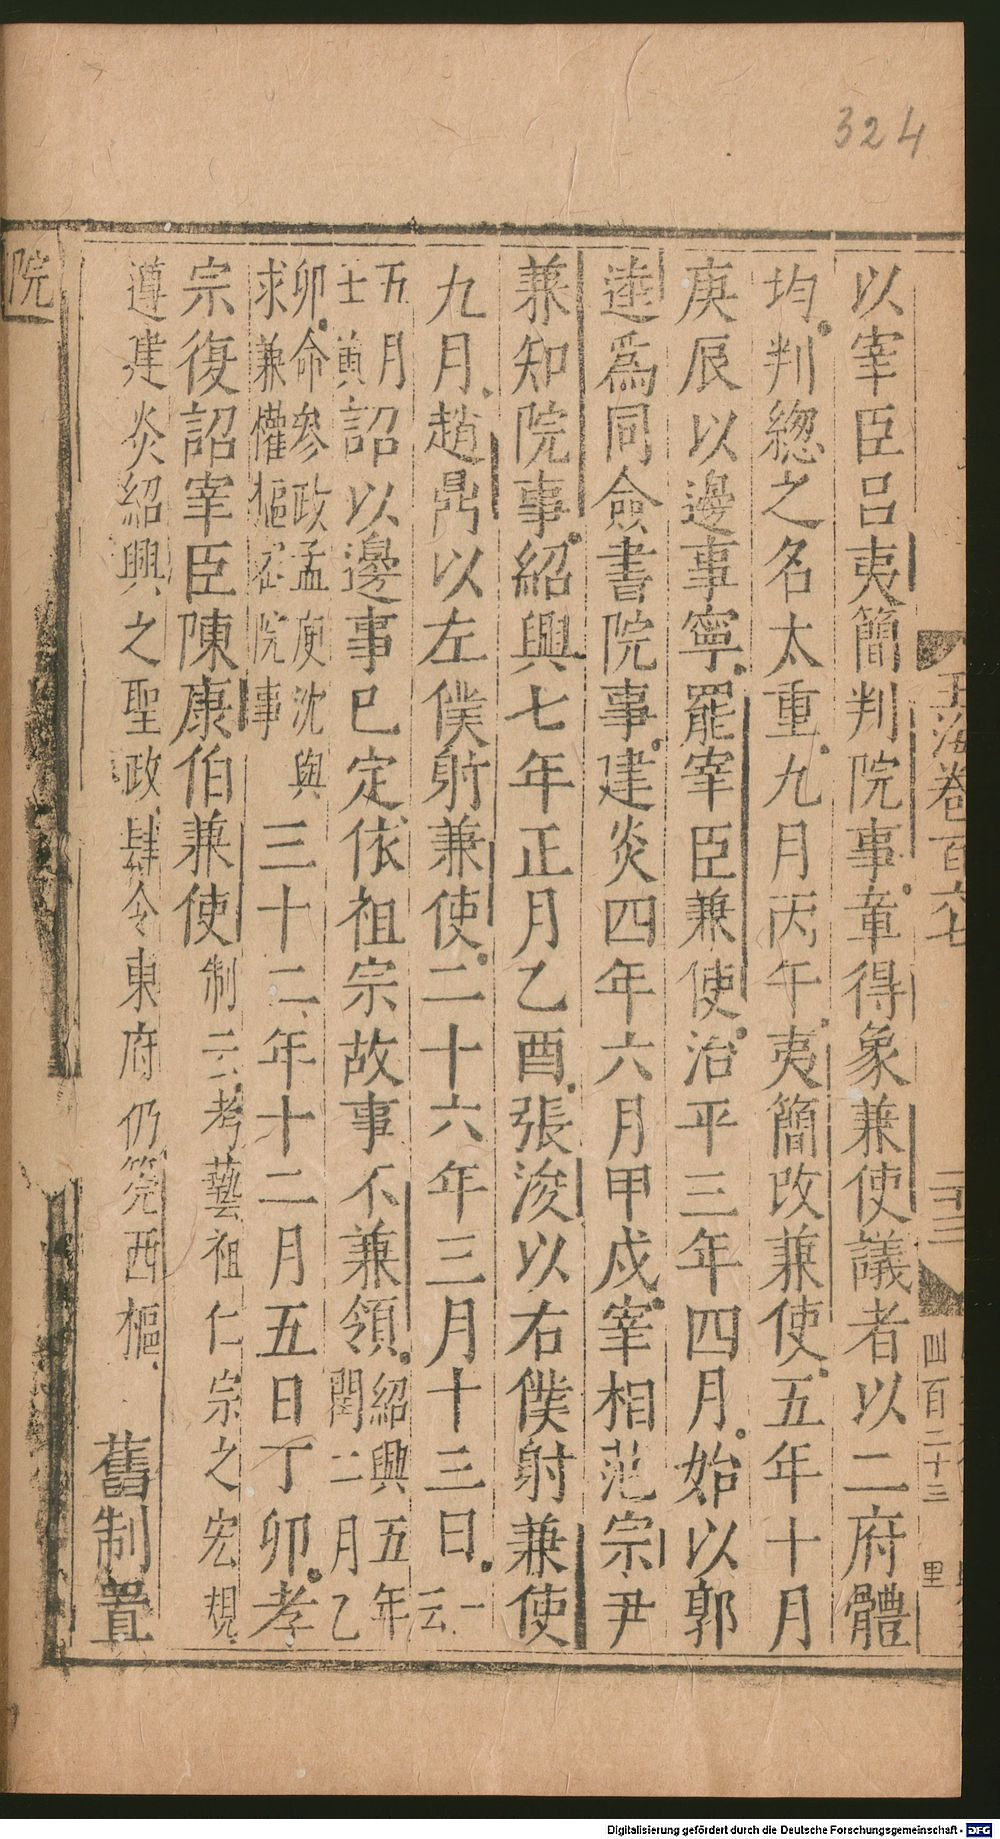 324
玉海卷百六七
二十三
四百二十三
里
以宰臣呂夷簡判院事章得象兼使議者以二府體
均判緫之名太重九月丙午夷簡改兼使五年十月
庚辰以邊事寧罷宰臣兼使治平三年四月始以郭
逵爲同僉書院事建炎四年六月甲戌宰相范宗尹
兼知院事紹興七年正月乙酉張浚以右僕射兼使
九月趙鼎以左僕射兼使二十六年三月十三日一云
五月壬寅詔以邊事已定依祖宗故事不兼領紹興五年閏二月乙
卯命參政孟庾沈與求兼權樞密院事三十二年十二月五日丁卯孝
宗復詔宰臣陳康伯兼使制云考藝祖仁宗之宏規
遵建炎紹興之聖政肆令東府仍筦西樞舊制置
院
Digitalisierung gefördert durch die Deutsche Forschungsgemeinschaft - DFG